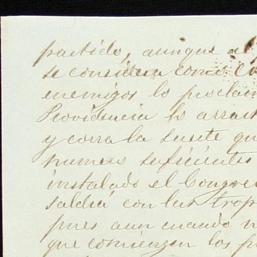 partido, aunque el
se considera como
enemigos lo proclam
Providencia lo arras
y corra la suerte que
numero suficiente
instalado el Congre
saldra con las trop
pues aun cuando n
que comienzen los p